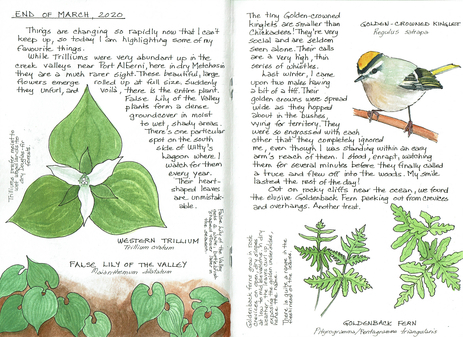 END OF MARCH, 2020
Things are changing so rapidly now that I can't
keep up, so today I am highlighting some of my
favourite things.
While Trilliums were very abundant up in the
creek valleys near Port Alberni, here in dry Metchosin
they are a much rarer sight. These beautiful, large
flowers emerge rolled up at full size. Suddenly
they unfurl, and Voila, there is the entire plant.
False Lily of the Valley
plants form a dense
groundcover in moist
to wet, shady areas.
There's one particular
spot on the south
side of Witty's
Lagoon where I
watch for them
every year.
Their heart-
shaped leaves
are unmistak-
able.
WESTERN TRILLIUM
Trillium ovatum
FALSE LILY OF THE VALLEY
Maianthemum dilatatum
The tiny Golden-crowned
kinglets are smaller than
Chickadees! They're very
social and are seldom
seen alone. Their calls
are a very high, thin
series of whistles.
Last winter, I came
upon two males having
a bit of a tiff. Their
golden crowns were spread
wide as they hopped
about in the bushes,
vying for territory. They
were so engrossed with each
other that they completely ignored
me, even though I was standing within an easy
arm's reach of them. I stood, enrapt, watching
them for several minutes before they finally called
a truce and flew off into the woods. My smile
lasted the rest of the day!
Out on rocky cliffs near the ocean, we found
the elusive Goldenback Fern peeking out from crevices
and overhangs. Another treat.
GOLDEN-CROWNED KINGLET
Regulus satrapa
Goldenback ferns grow in rock
GOLDENBACK FERN
Pityrogramma/Pentagramma triangularis